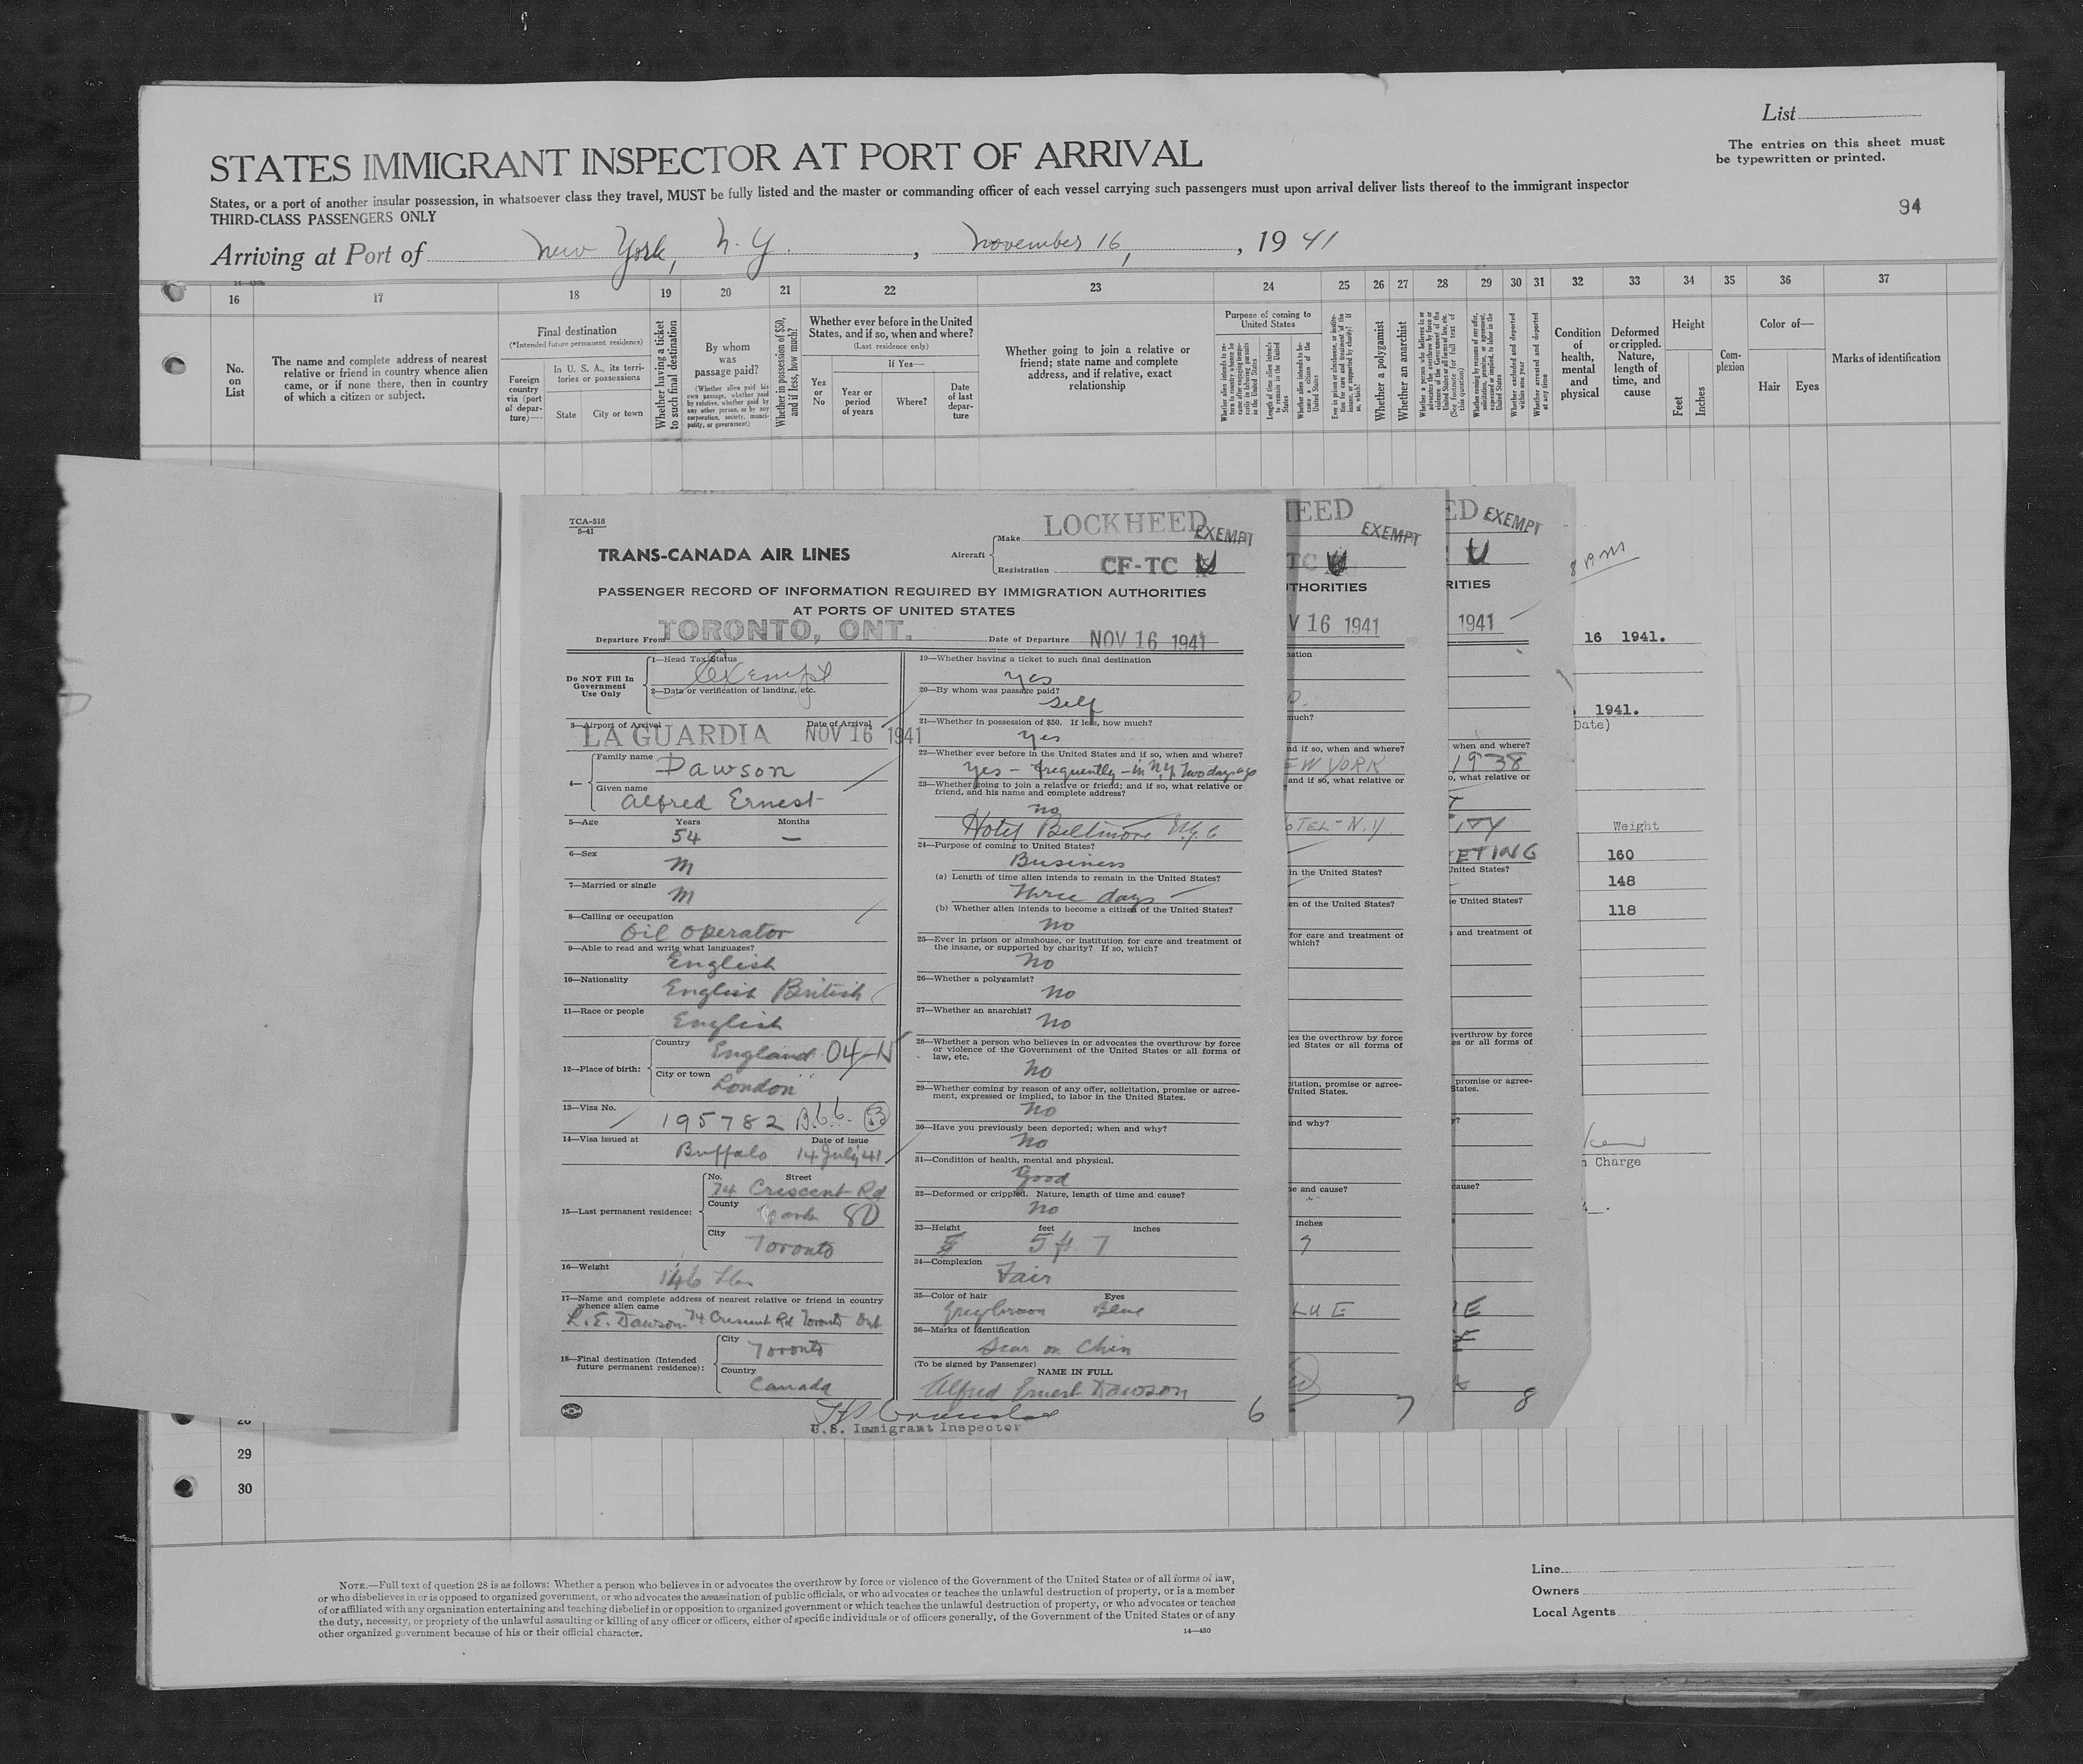 List
The entries on this sheet must
be typewritten or printed.
STATES IMMIGRANT INSPECTOR AT PORT OF ARRIVAL
States, or a port of another insular possession, in whatsoever class they travel, MUST be fully listed and the master or commanding officer of each vessel carrying such passengers must upon arrival deliver lists thereof to the immigrant inspector
THIRD-CLASS PASSENGERS ONLY
94
Arriving at Port of New York, N.Y., November 16, 1941
16 17 18 19 20 21 22 23 24 25 26 27 28 29 30 31 32 33 34 35 36 37
No. on List
The name and complete address of nearest
relative or friend in country whence alien
came, or if none there, then in country
of which a citizen or subject.
Final destination
(*Intended future permanent residence)
Foreign
country
via (port
of depar-
ture)—
In U. S. A., its terri-
tories or possessions
State
City or town
Whether having a ticket
to such final destination
By whom
was
passage paid?
(Whether alien paid his
own passage, whether paid
by relative, whether paid by
any other person, or by any
corporation, society, munici-
pality, or government)
Whether in possession of $50,
and if less, how much?
Whether ever before in the United
States, and if so, when and where?
(Last residence only)
If Yes—
Yes
or
No
Year or
period
of years
Where?
Date
of last
depar-
ture
Whether going to join a relative or
friend; state name and complete
address, and if relative, exact
relationship
Purpose of coming to
United States
Length of time alien intends
to remain in the United
States
Whether alien intends to be-
come a citizen of the
United States
Whether a polygamist
Whether an anarchist
Whether excluded and deported
within one year
Whether arrested and deported
at any time
Condition
of
health,
mental
and
physical
Deformed
or crippled.
Nature,
length of
time, and
cause
Height
Feet
Inches
Com-
plexion
Color of—
Hair
Eyes
Marks of identification
TCA-518
5-41
TRANS-CANADA AIR LINES
Aircraft
Make LOCKHEED
EXEMPT
Registration CF-TC U
PASSENGER RECORD OF INFORMATION REQUIRED BY IMMIGRATION AUTHORITIES
AT PORTS OF UNITED STATES
Departure From TORONTO, ONT. Date of Departure NOV 16 1941
Do NOT Fill In
Government
Use Only
1—Head Tax Status
Exempt
2—Data or verification of landing, etc.
3—Airport of Arrival Date of Arrival
LA GUARDIA NOV 16 1941
4—
Family name
Dawson
Given name
Alfred Ernest
5—Age Years Months
54 —
6—Sex
M
7—Married or single
M
8—Calling or occupation
Oil Operator
9—Able to read and write what languages?
English
10—Nationality
English British
11—Race or people
English
12—Place of birth:
Country
England 04-N
City or town
London
13—Visa No.
195782 B.b.b. 53
14—Visa issued at Date of issue
Buffalo 14 July 41
15—Last permanent residence:
No. Street
74 Crescent Rd
County
York 80
City
Toronto
16—Weight
146 lbs
17—Name and complete address of nearest relative or friend in country
whence alien came
L.E. Dawson 74 Crescent Rd Toronto Ont
18—Final destination (Intended
future permanent residence):
City
Toronto
Country
Canada
19—Whether having a ticket to such final destination
yes
20—By whom was passage paid?
Self
21—Whether in possession of $50. If less, how much?
yes
22—Whether ever before in the United States and if so, when and where?
Yes - frequently - in N.Y. two days ago
23—Whether going to join a relative or friend; and if so, what relative or
friend, and his name and complete address?
no
Hotel Biltmore N.Y.C
24—Purpose of coming to United States?
Business
(a) Length of time alien intends to remain in the United States?
Three days
(b) Whether alien intends to become a citizen of the United States?
No
25—Ever in prison or almshouse, or institution for care and treatment of
the insane, or supported by charity? If so, which?
No
26—Whether a polygamist?
No
27—Whether an anarchist?
No
28—Whether a person who believes in or advocates the overthrow by force
or violence of the Government of the United States or all forms of
law, etc.
No
29—Whether coming by reason of any offer, solicitation, promise or agree-
ment, expressed or implied, to labor in the United States.
No
30—Have you previously been deported; when and why?
No
31—Condition of health, mental and physical.
Good
32—Deformed or crippled. Nature, length of time and cause?
No
33—Height feet inches
5 ft 7
34—Complexion
Fair
35—Color of hair Eyes
Grey brown Blue
36—Marks of Identification
Scar on Chin
(To be signed by Passenger)
NAME IN FULL
Alfred Ernest Dawson
6
U.S. Immigrant Inspector
EED
EXEMPT
TC U
THORITIES
V 16 1941
nation
much?
nd if so, when and where?
EW YORK
and if so, what relative or
OTEL - N.Y.
in the United States?
en of the United States?
for care and treatment of
which?
es the overthrow by force
ed States or all forms of
itation, promise or agree-
United States.
nd why?
e and cause?
inches
7
LUE
7
ED EXEMPT
U
RITIES
1941
when and where?
1938
o, what relative or
ITY
ETING
United States?
e United States?
and treatment of
verthrow by force
es or all forms of
promise or agree-
States.
y?
cause?
E
8
16 1941.
1941.
Date)
Weight
160
148
118
n Charge
29
30
NOTE.—Full text of question 28 is as follows: Whether a person who believes in or advocates the overthrow by force or violence of the Government of the United States or of all forms of law,
or who disbelieves in or is opposed to organized government, or who advocates the assassination of public officials, or who advocates or teaches the unlawful destruction of property, or is a member
of or affiliated with any organization entertaining and teaching disbelief in or opposition to organized government or which teaches the unlawful destruction of property, or who advocates or teaches
the duty, necessity, or propriety of the unlawful assaulting or killing of any officer or officers, either of specific individuals or of officers generally, of the Government of the United States or of any
other organized government because of his or their official character.
14—430
Line
Owners
Local Agents